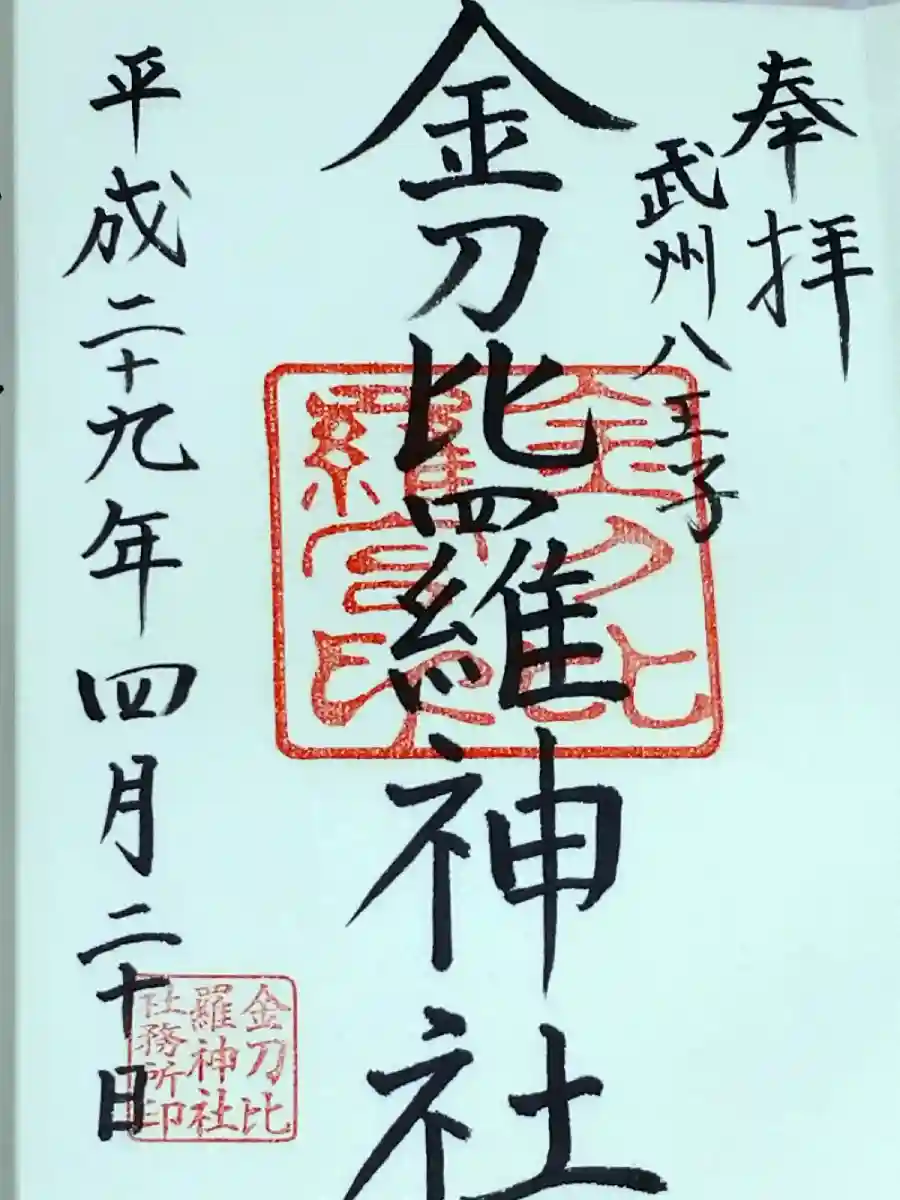 奉拝
武州八王子
金刀比羅神社
金刀比
羅宮印
平成二十九年四月二十日
金刀比
羅神社
社務所印